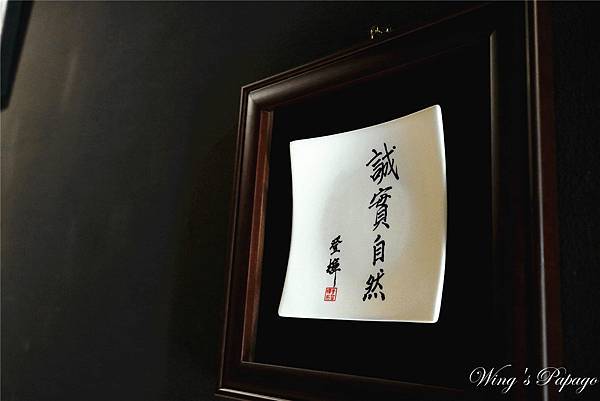 誠實自然
登輝
Wing's Papago